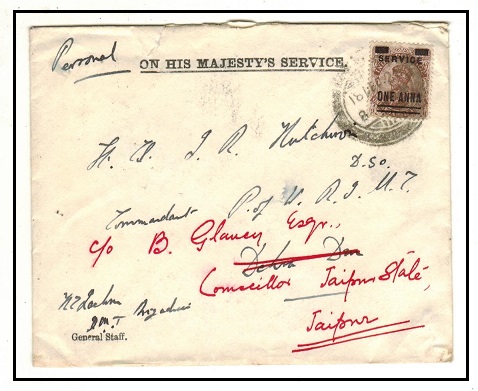 Personal
ON HIS MAJESTY'S SERVICE.
SERVICE
ONE ANNA
J. R. Hutchison
D.S.O.
Commandant P. of W. R. I. M. C.
c/o B. Glancy Esqr.,
Dehra Dun
Councillor Jaipur State,
Jaipur
General Staff.